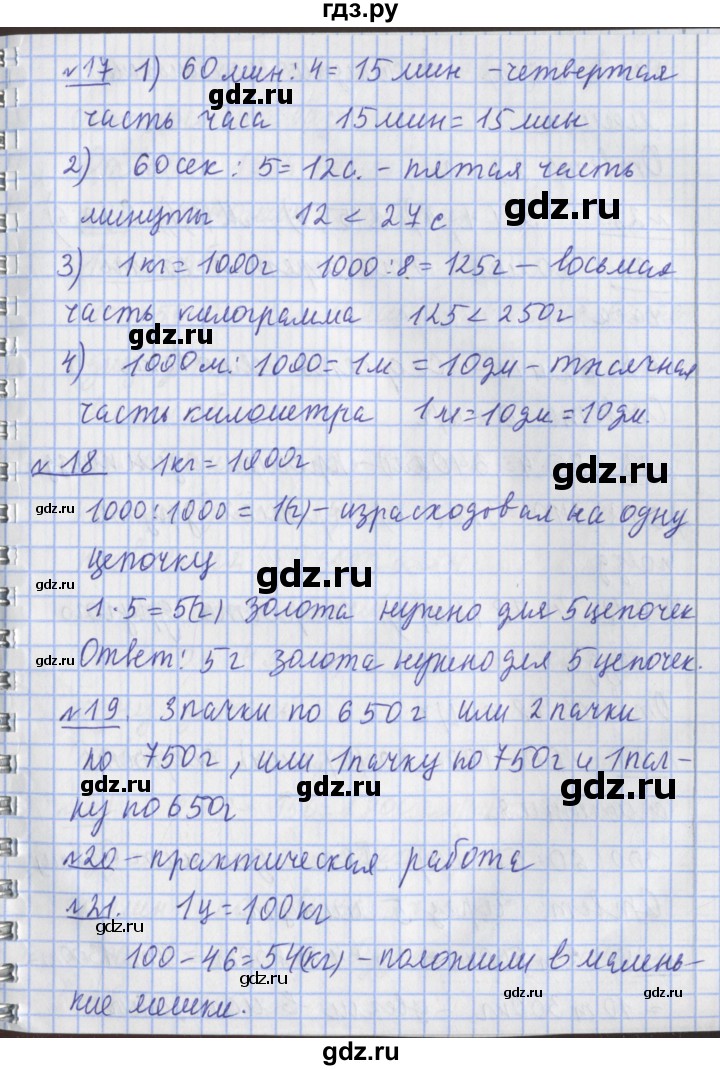 гдз.ру
№17 1) 60 мин : 4 = 15 мин - четвертая
gdz.ru
часть часа 15 мин = 15 мин
2) 60 сек : 5 = 12 с. - пятая часть
gdz.ru
gdz.ru
минуты 12 < 27 с
3) 1 кг = 1000 г 1000 : 8 = 125 г - восьмая
часть килограмма 125 < 250 г
gdz.ru
4) 1000 м : 1000 = 1 м = 10 дм - тысячная
часть километра 1 м = 10 дм = 10 дм.
№18 1 кг = 1000 г
gdz.ru
gdz.ru
1000 : 1000 = 1 (г) - израсходовал на одну
цепочку
gdz.ru
gdz.ru
1 · 5 = 5 (г) золота нужно для 5 цепочек
gdz.ru
Ответ: 5 г золота нужно для 5 цепочек.
№19. 3 пачки по 650 г или 2 пачки
gdz.ru
по 750 г, или 1 пачку по 750 г и 1 пач-
gdz.ru
gdz.ru
ку по 650 г
№20 - практическая работа
gdz.ru
№21. 1 ц = 100 кг
100 - 46 = 54 (кг) - положили в малень-
gdz.ru
gdz.ru
кие мешки.
gdz.ru
gdz.ru